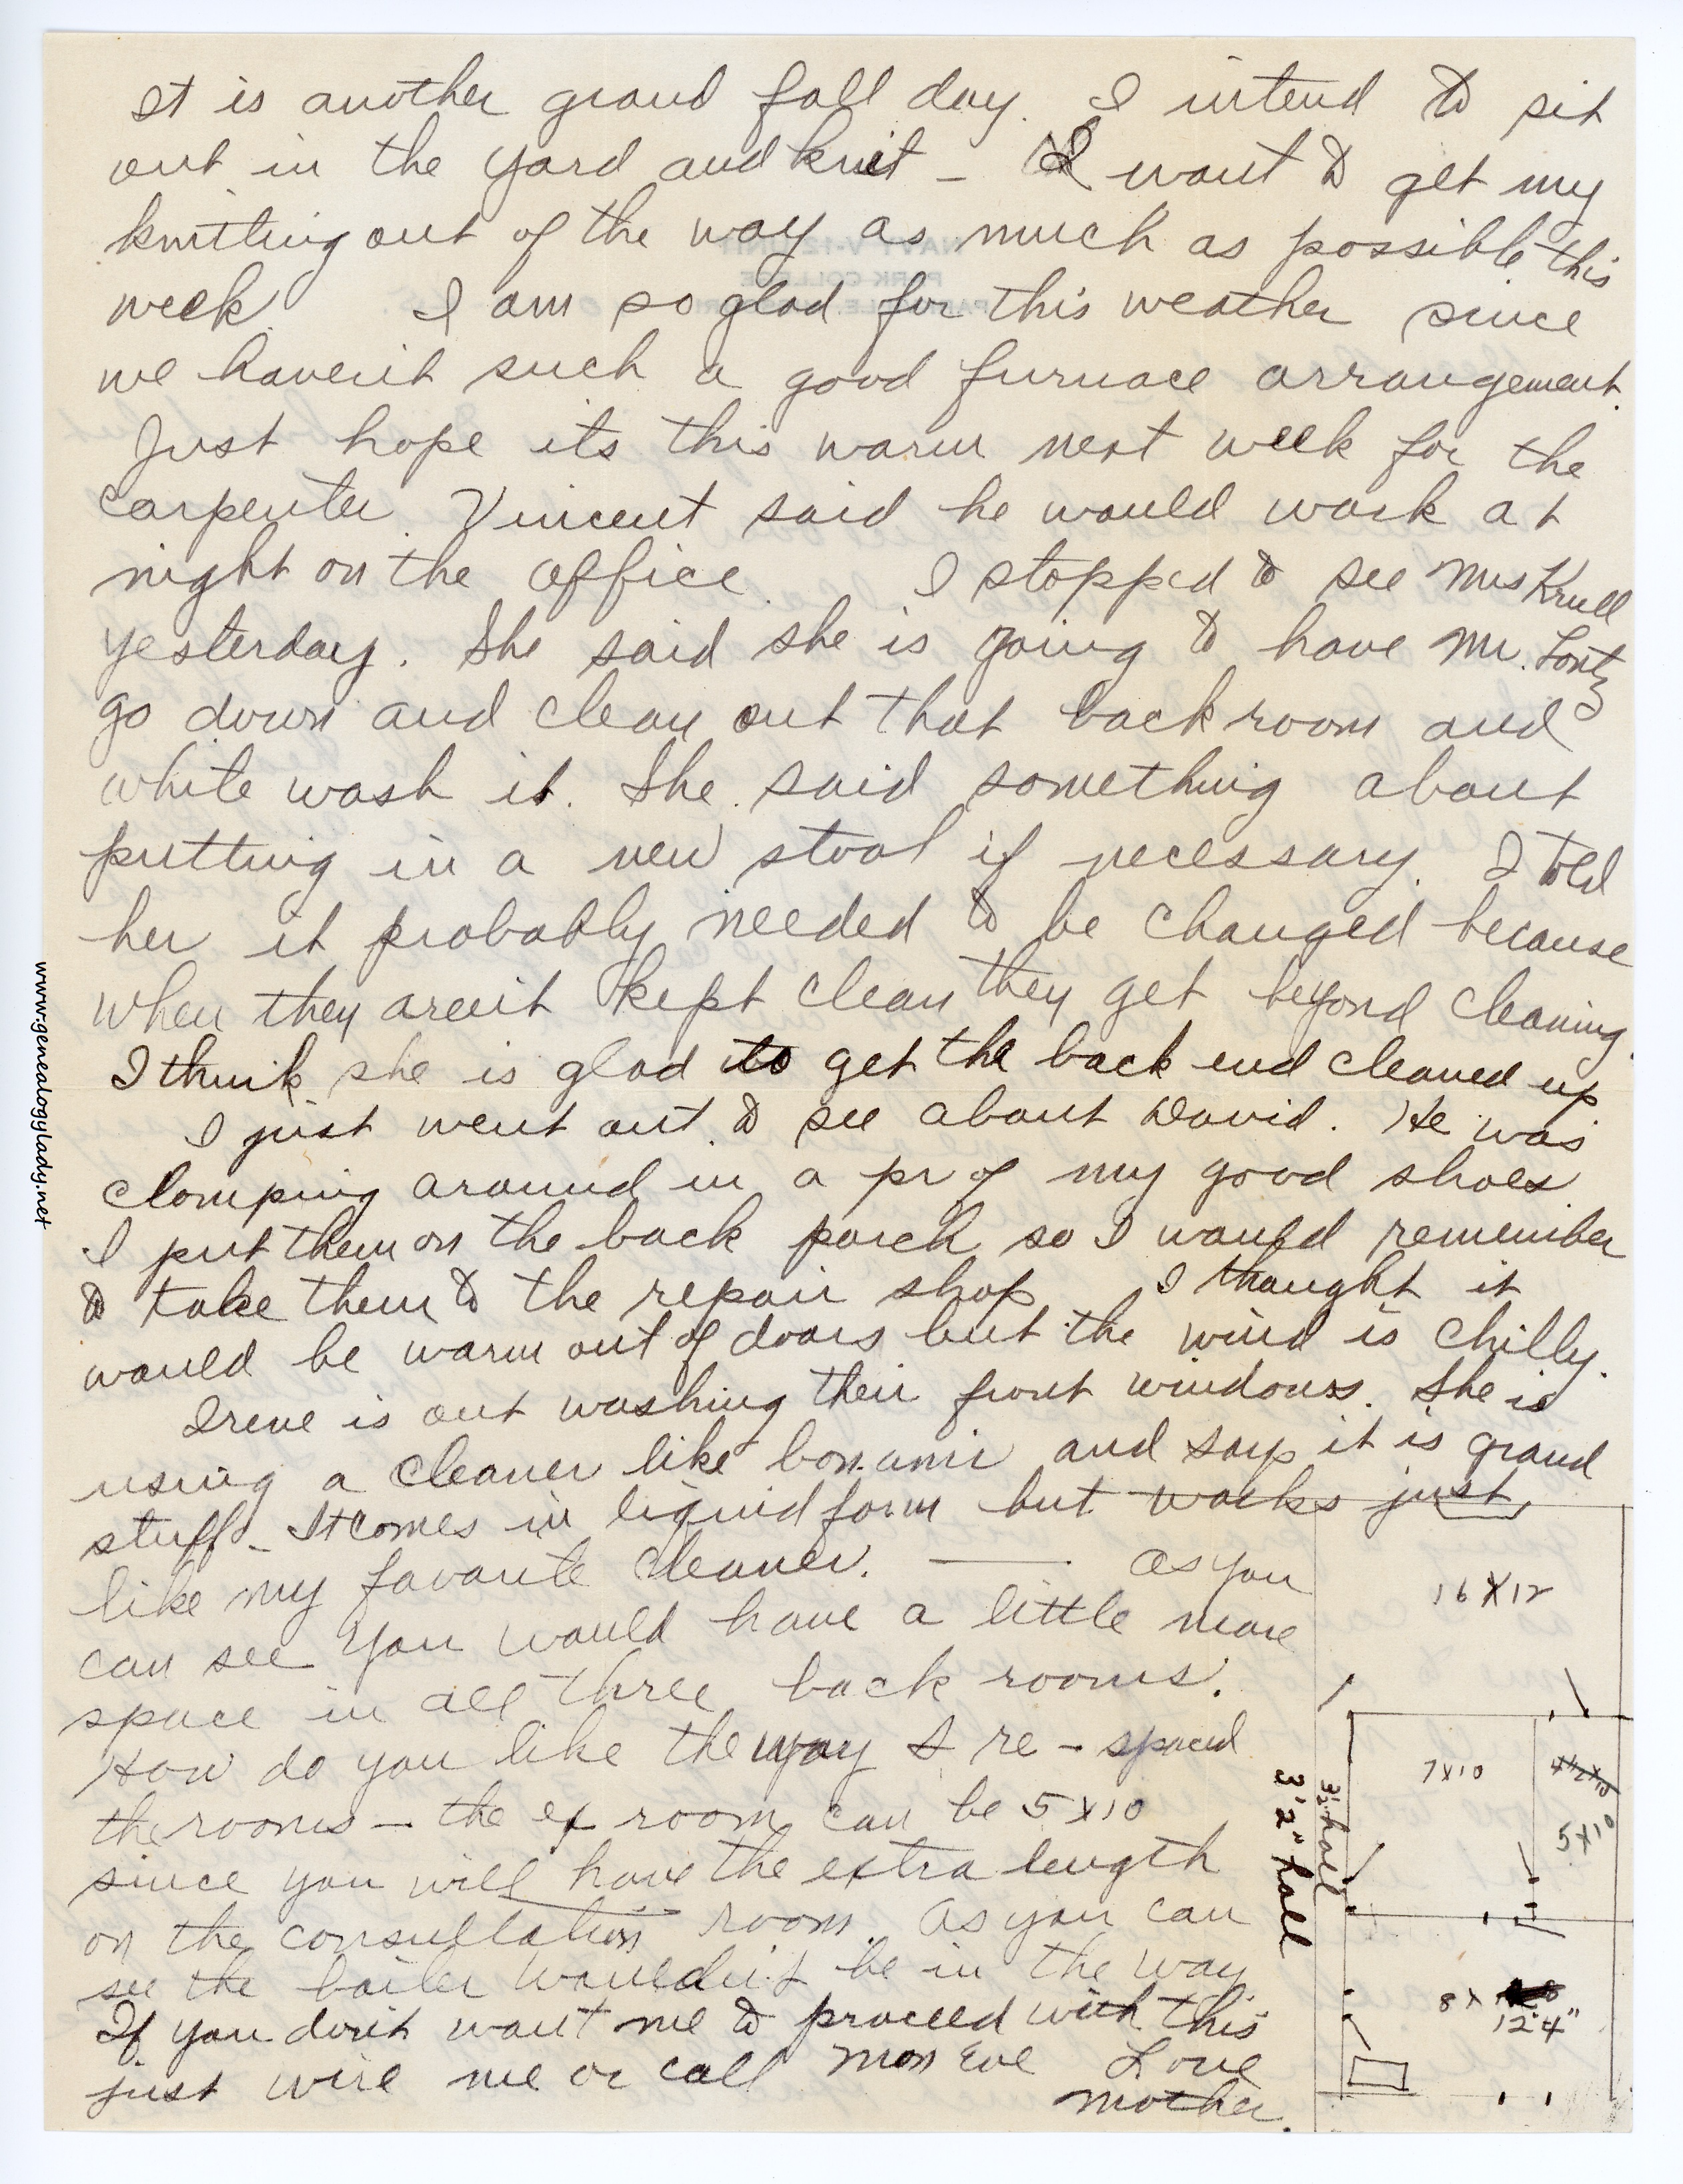 It is another grand fall day. I intend to sit
out in the yard and knit – I want to get my
knitting out of the way as much as possible this
week. I am so glad for this weather since
we haven't such a good furnace arrangement.
Just hope its this warm next week for the
carpenter. Vincent said he would work at
night on the office. I stopped to see Mrs Krull
yesterday. She said she is going to have Mr. Lontz
go down and clean out that back room and
white wash it. She said something about
putting in a new stool if necessary. I told
her it probably needed to be changed because
when they aren't kept clean they get beyond cleaning.
I think she is glad to get the back end cleaned up
I just went out to see about David. He was
clomping around in a pr of my good shoes
I put them on the back porch so I would remember
to take them to the repair shop I thought it
would be warm out of doors but the wind is chilly.
Irene is out washing their front windows. She is
using a cleaner like bon ami and says it is grand
stuff – It comes in liquid form but works just
like my favorite cleaner. — as you
can see you would have a little more
space in all three back rooms.
How do you like the way I re-spaced
the rooms – the ex room can be 5 x 10
since you will have the extra length
on the consultation room. As you can
see the boiler wouldn't be in the way
If you don't want me to proceed with this
just wire me or call Mon Eve Love
Mother.
16 X 12
7 x 10
4 1/2 x 10
5 x 10
3 1/2 hall
3' 2" hall
8 x
12' 4"
NAVY V-12 UNIT
PARK COLLEGE
www.genealogylady.net